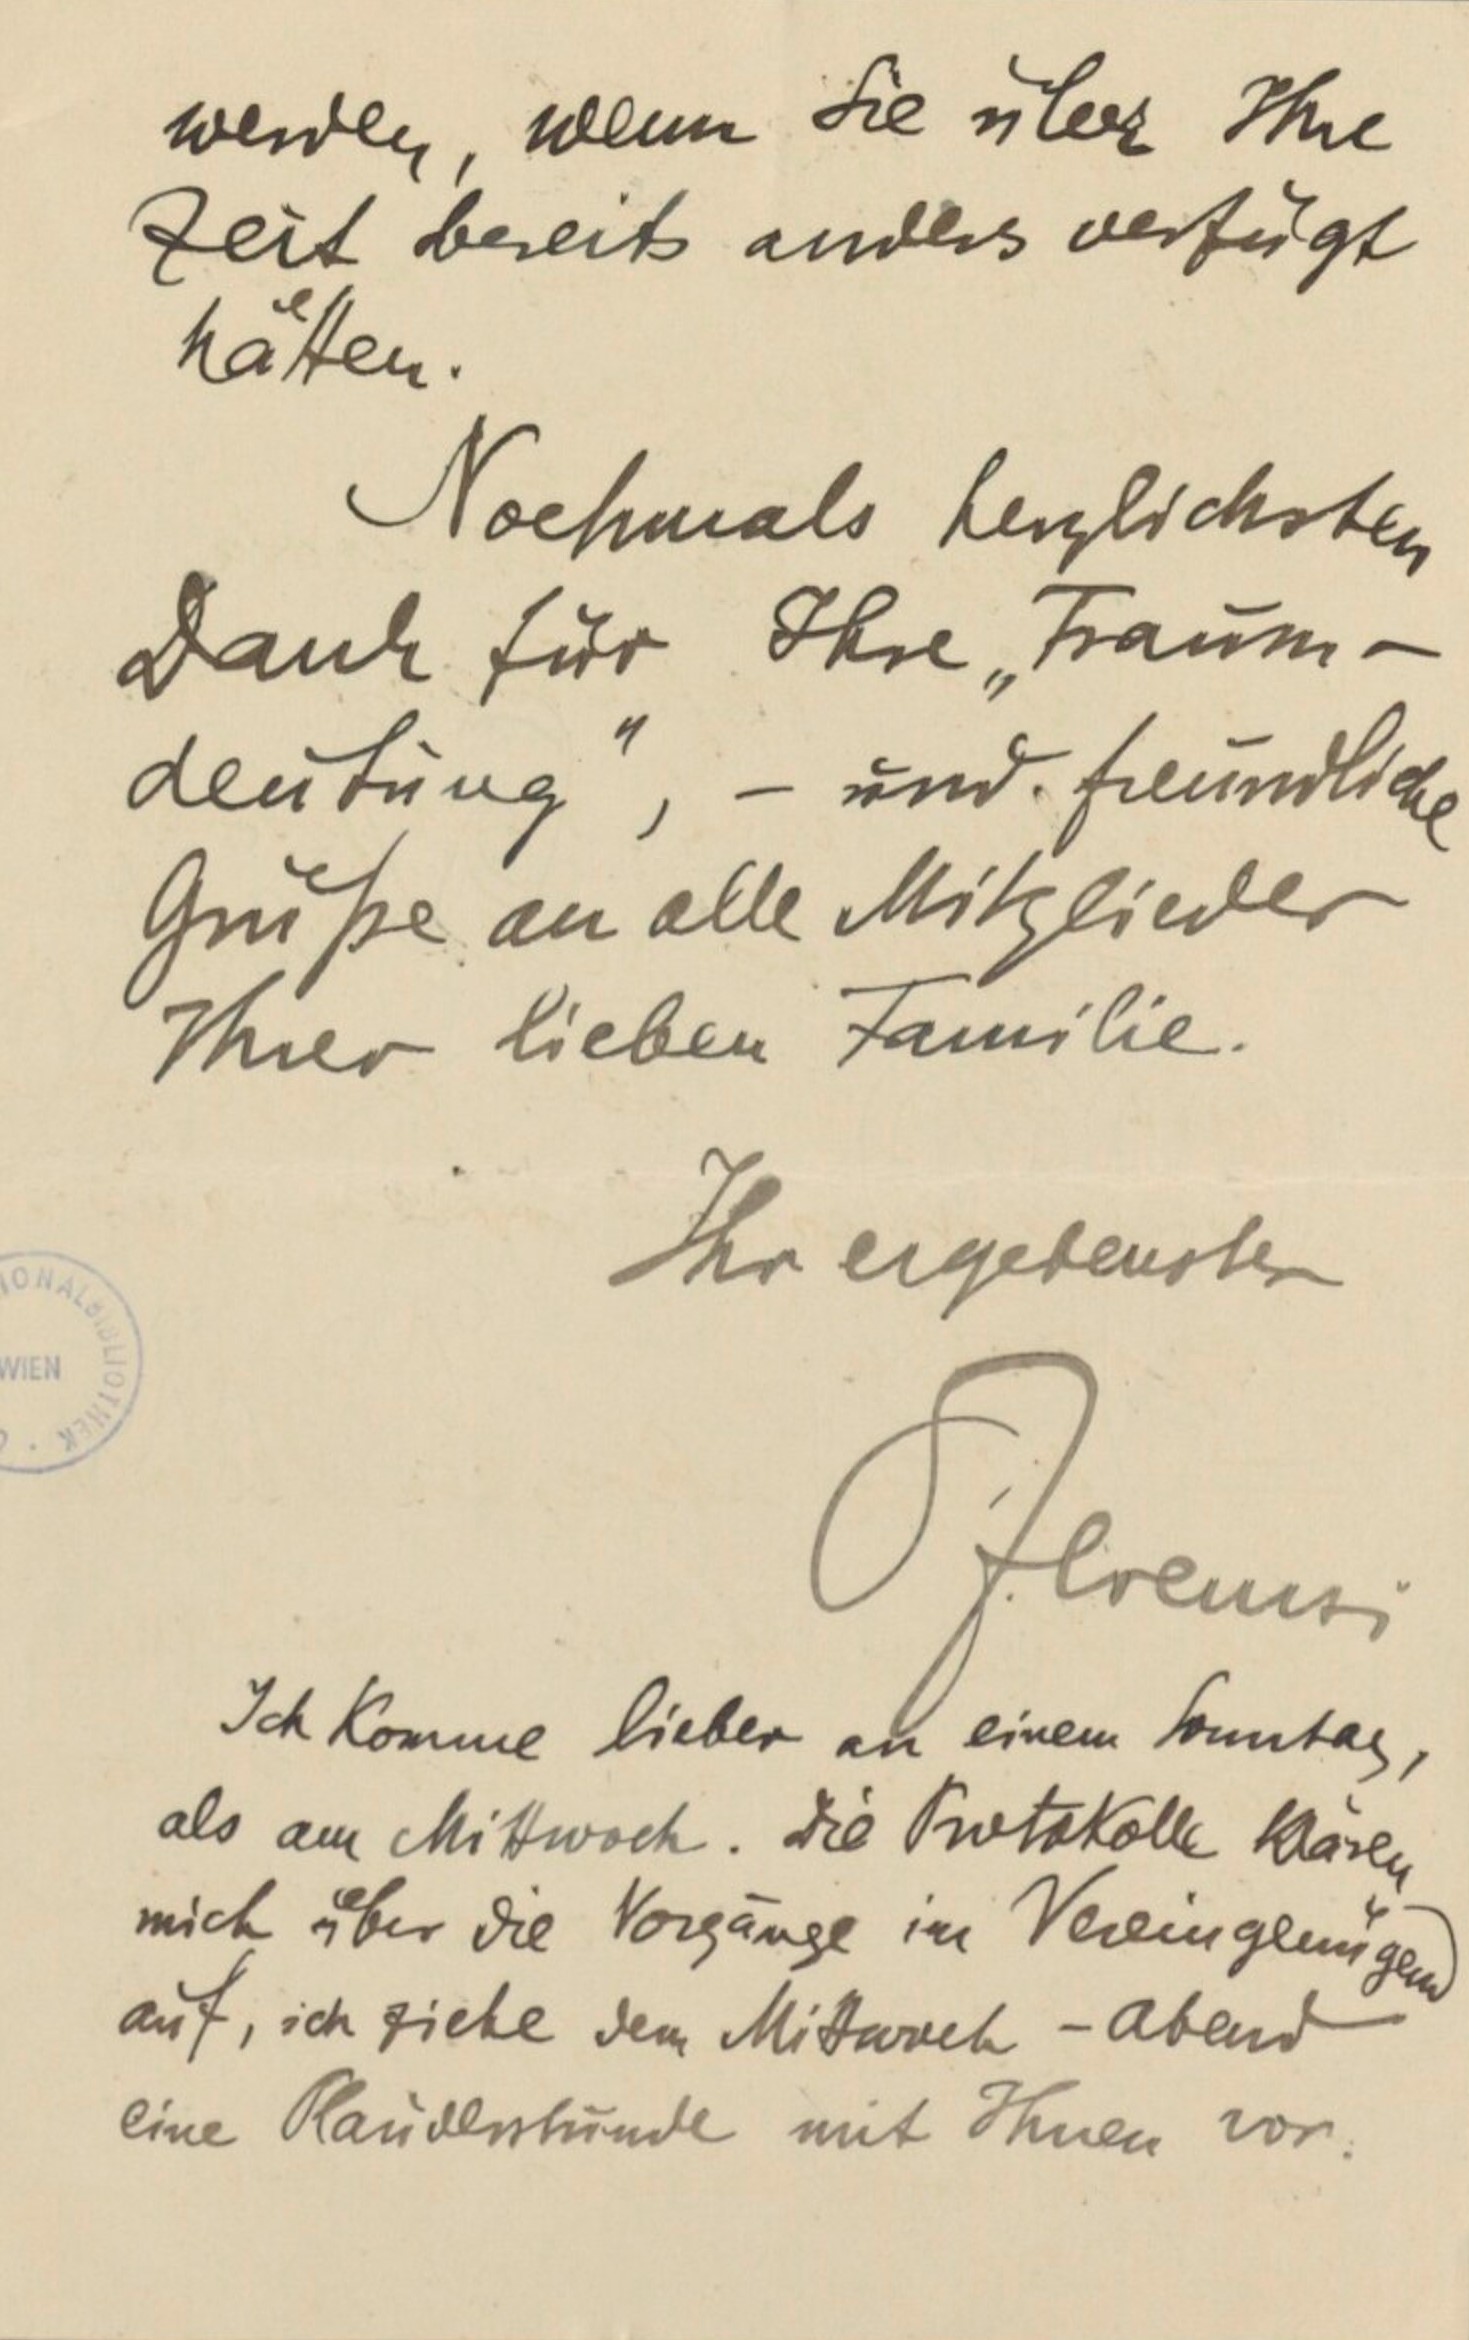 werden, wenn Sie über Ihre
Zeit bereits anders verfügt
hätten.
Nochmals herzlichsten
Dank für Ihre „Traum-
deutung", – und freundliche
Grüße an alle Mitglieder
Ihrer lieben Familie.
Ihr ergebenster
Ferenczi
IONALBIBLIOTHEK
WIEN
Ich komme lieber an einem Sonntag,
als am Mittwoch. Die Protokolle klären
mich über die Vorgänge im Verein genügend
auf, ich ziehe dem Mittwoch-abend
eine Plauderstunde mit Ihnen vor.